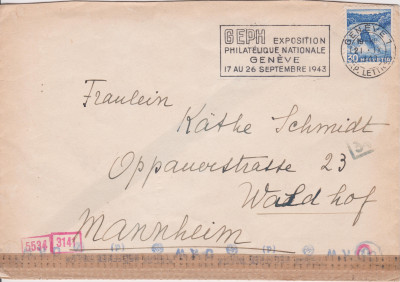 GEPH EXPOSITION
PHILATÉLIQUE NATIONALE
GENÈVE
17 AU 26 SEPTEMBRE 1943
GENÈVE 1
30 HELVETIA
Fraulein
Käthe Schmidt
Oppauerstrasse 23
Waldhof
Mannheim
5534 3141